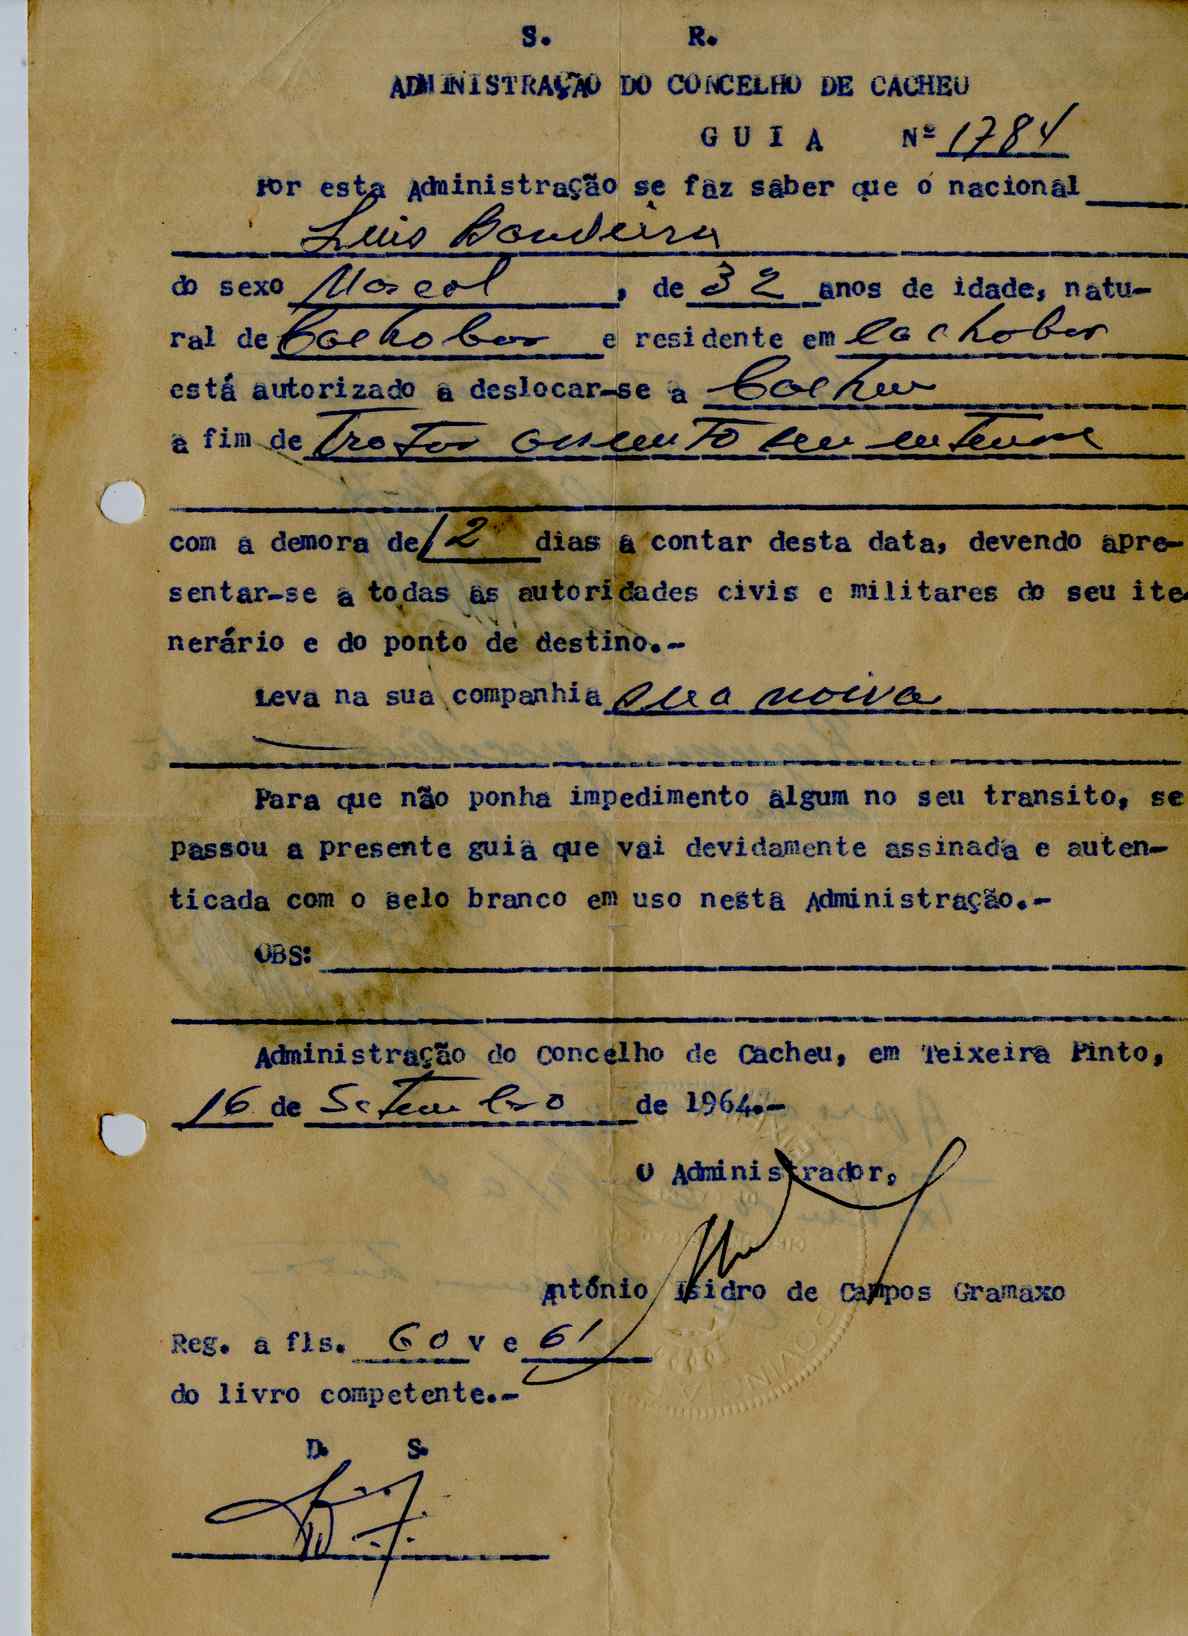 S. R.
ADMINISTRAÇÃO DO CONCELHO DE CACHEU
GUIA Nº 1784
Por esta Administração se faz saber que o nacional
Luis Bandeira
do sexo Mascol, de 32 anos de idade, natu-
ral de Cachobar e residente em Cachobar
está autorizado a deslocar-se a Cacheu
a fim de Tratar
com a demora de 12 dias a contar desta data, devendo apre-
sentar-se a todas as autoridades civis e militares do seu ite-
nerário e do ponto de destino.-
Leva na sua companhia sua noiva
Para que não ponha impedimento algum no seu transito, se
passou a presente guia que vai devidamente assinada e auten-
ticada com o selo branco em uso nesta Administração.-
OBS:
Administração do Concelho de Cacheu, em Teixeira Pinto,
16 de Setembro de 1964.-
O Administrador,
António Isidro de Campos Gramaxo
Reg. a fls. 60 v e 61
do livro competente.-
D. S.